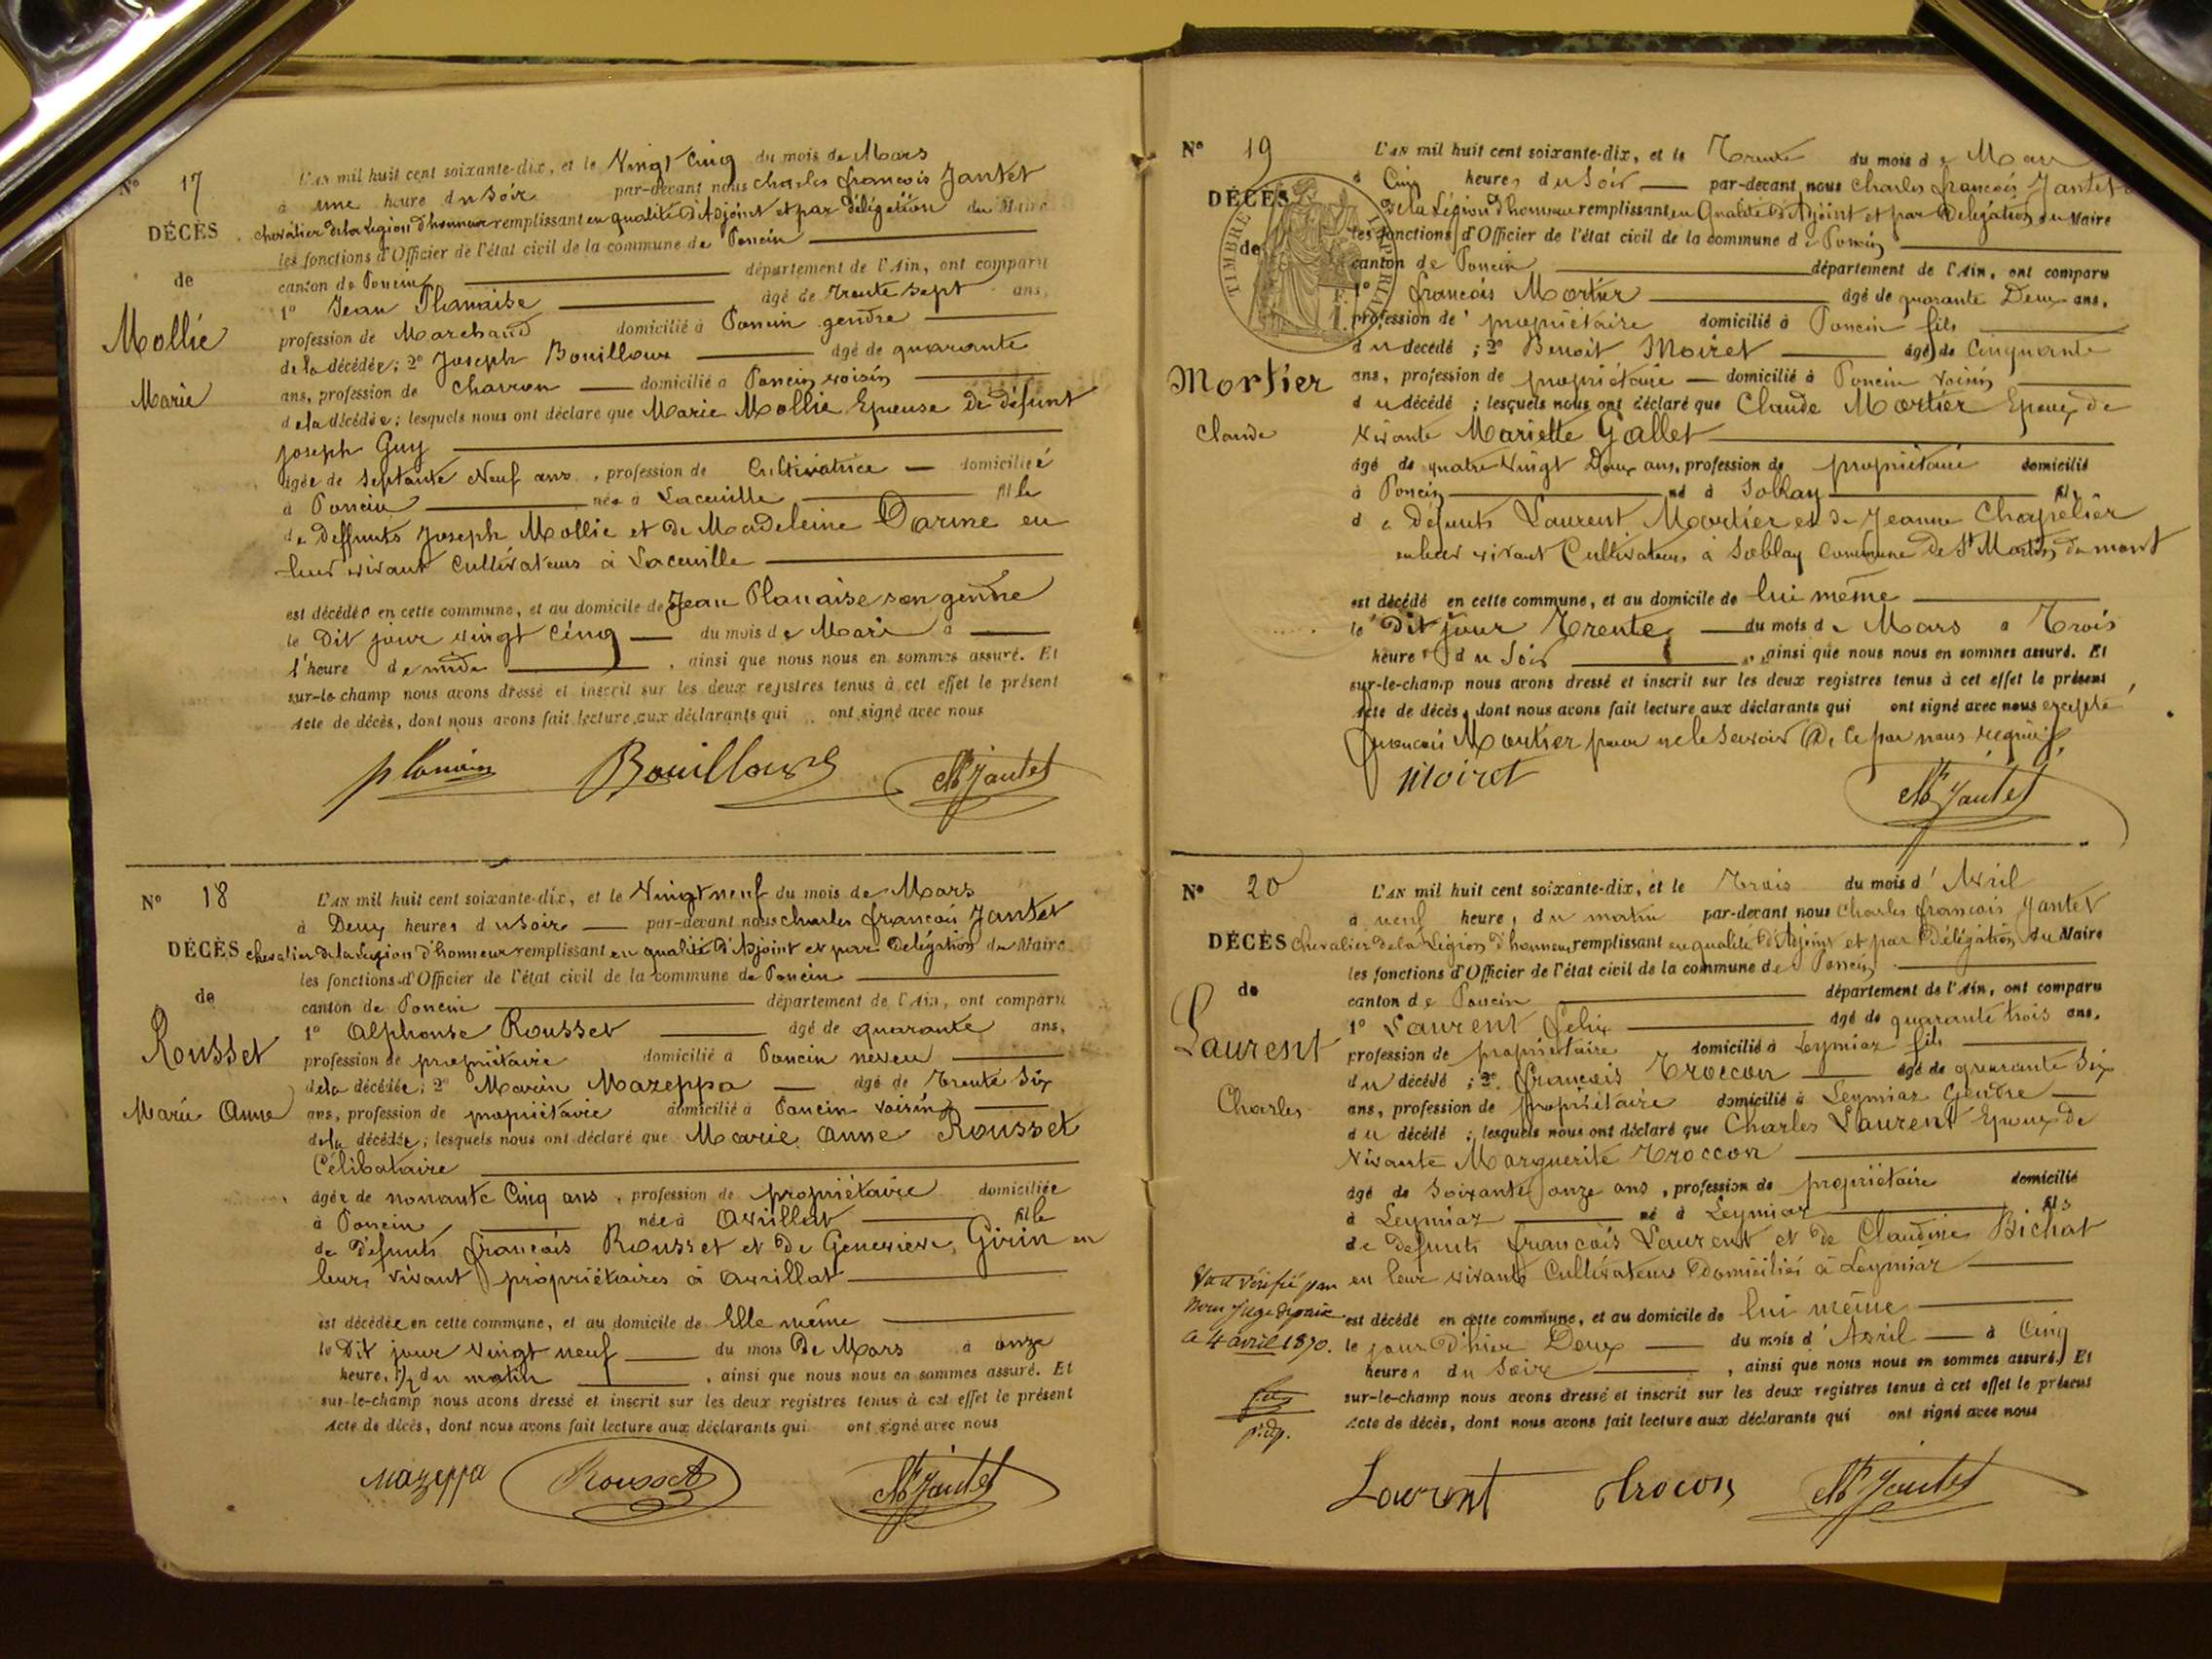 N° 17
DÉCÈS
de
Mollié
Marie
L'AN mil huit cent soixante-dix, et le Vingt Cinq du mois de Mars
à une heure du Soir par-devant nous Charles françois Jantet
chevalier de la Légion d'honneur remplissant en qualité d'Adjoint et par délégation du Maire
les fonctions d'Officier de l'état civil de la commune de Poncin
canton de Poncin département de l'Ain, ont comparu
1° Jean Planaise âgé de Trente Sept ans,
profession de Marchand domicilié à Poncin gendre
de la décédée; 2° Joseph Bouilloux âgé de quarante
ans, profession de Charron domicilié à Poncin voisin
de la décédée; lesquels nous ont déclaré que Marie Mollié Epouse De défunt
Joseph Guy
âgée de Septante Neuf ans, profession de Cultivatrice domiciliée
à Poncin née à fille
de deffunts Joseph Mollié et De Madeleine Darme en
leur vivant Cultivateurs à
est décédée en cette commune, et au domicile de Jean Planaise son gendre
le Dit jour vingt Cinq du mois de Mars à
l'heure de midi, ainsi que nous nous en sommes assuré. Et
sur-le-champ nous avons dressé et inscrit sur les deux registres tenus à cet effet le présent
Acte de décès, dont nous avons fait lecture aux déclarants qui ont signé avec nous
Bouilloux Ch Jantet
N° 18
DÉCÈS
de
Rousset
Marie Anne
L'AN mil huit cent soixante-dix, et le Vingt neuf du mois de Mars
à Deux heures du Soir par-devant nous Charles françois Jantet
chevalier de la Légion d'honneur remplissant en qualité d'Adjoint et par Délégation du Maire
les fonctions d'Officier de l'état civil de la commune de Poncin
canton de Poncin département de l'Ain, ont comparu
1° Alphonse Rousset âgé de quarante ans,
profession de propriétaire domicilié à Poncin neveu
de la décédée; 2° Marin Mazeppa âgé de Trente Six
ans, profession de propriétaire domicilié à Poncin voisin
de la décédée; lesquels nous ont déclaré que Marie Anne Rousset
Célibataire
âgée de nonante Cinq ans, profession de propriétaire domiciliée
à Poncin née à Avrillat fille
de défunts françois Rousset et De Geneviève Girin en
leurs vivant propriétaires à Avrillat
est décédée en cette commune, et au domicile de Elle même
le Dit jour Vingt neuf du mois De Mars à onze
heure, 1/2 du matin, ainsi que nous nous en sommes assuré. Et
sur-le-champ nous avons dressé et inscrit sur les deux registres tenus à cet effet le présent
Acte de décès, dont nous avons fait lecture aux déclarants qui ont signé avec nous
Mazeppa Rousset Ch Jantet
N° 19
DÉCÈS
de
Mortier
Claude
TIMBRE IMPERIAL
L'AN mil huit cent soixante-dix, et le Trente du mois de Mars
à Cinq heures du Soir par-devant nous Charles françois Jantet
de la Légion d'honneur remplissant en Qualité d'Adjoint et par Délégation du Maire
les fonctions d'Officier de l'état civil de la commune de Poncin
canton de Poncin département de l'Ain, ont comparu
1° françois Mortier âgé de quarante Deux ans,
profession de propriétaire domicilié à Poncin fils
du décédé; 2° Benoit Moiret âgé de Cinquante
ans, profession de propriétaire domicilié à Poncin voisin
du décédé; lesquels nous ont déclaré que Claude Mortier Epoux de
vivante Mariette Gallet
âgé de quatre Vingt Deux ans, profession de propriétaire domicilié
à Poncin né à Soblay fils
de défunts Laurent Mortier et De Jeanne Chapelier
en leur vivant Cultivateurs à Soblay Commune De St Martin du mont
est décédé en cette commune, et au domicile de lui même
le Dit jour Trente du mois de Mars à Trois
heures du Soir, ainsi que nous nous en sommes assuré. Et
sur-le-champ nous avons dressé et inscrit sur les deux registres tenus à cet effet le présent
Acte de décès, dont nous avons fait lecture aux déclarants qui ont signé avec nous excepté
françois Mortier pour ne le Savoir De Ce par nous requis
Moiret Ch Jantet
N° 20
DÉCÈS
de
Laurent
Charles
L'AN mil huit cent soixante-dix, et le Trois du mois d'Avril
à neuf heures du matin par-devant nous Charles françois Jantet
Chevalier de la Légion d'honneur, remplissant en qualité d'Adjoint et par Délégation du Maire
les fonctions d'Officier de l'état civil de la commune de Poncin
canton de Poncin département de l'Ain, ont comparu
1° Laurent félix âgé de quarante trois ans,
profession de propriétaire domicilié à Leymiaz fils
du décédé; 2° françois Troccon âgé de quarante Six
ans, profession de propriétaire domicilié à Leymiaz Gendre
du décédé; lesquels nous ont déclaré que Charles Laurent Epoux De
Vivante Marguerite Troccon
âgé de Soixante onze ans, profession de propriétaire domicilié
à Leymiaz né à Leymiaz fils
de défunts françois Laurent et De Claudine Bichat
en leur vivants Cultivateurs Domiciliés à Leymiaz
est décédé en cette commune, et au domicile de lui même
le jour D'hier Deux du mois d'Avril à Cinq
heures du Soir, ainsi que nous nous en sommes assuré. Et
sur-le-champ nous avons dressé et inscrit sur les deux registres tenus à cet effet le présent
Acte de décès, dont nous avons fait lecture aux déclarants qui ont signé avec nous
Vu et vérifié par
Nous Juge de paix
ce 4 avril 1870.
Laurent Trocon Ch Jantet